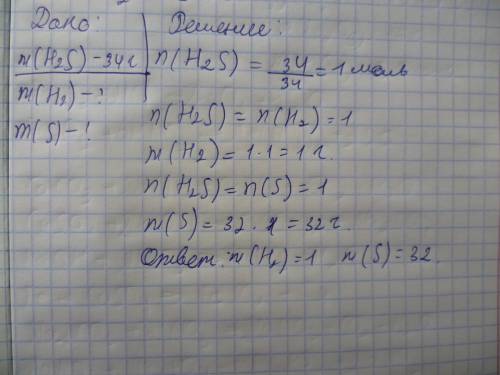 Дано:
m(H₂S) – 34г
m(H₂) – ?
m(S) – ?
Решение:
n(H₂S) = 34/34 = 1 моль
n(H₂S) = n(H₂) = 1
m(H₂) = 1·1 = 1 г.
n(H₂S) = n(S) = 1
m(S) = 32 · 1 = 32 г.
Ответ: m(H₂) = 1 m(S) = 32.